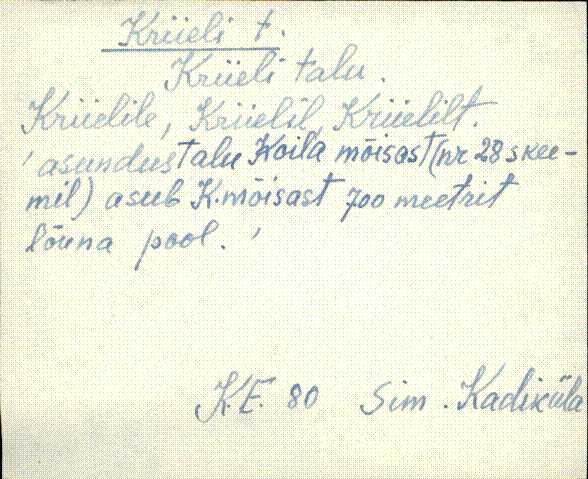 Krüeli t.
Krüeli talu.
Krüelile, Krüelil, Krüelilt.
'asundustalu Koila mõisast (nr 28 skee-
mil) asub K.mõisast 700 meetrit
lõuna pool.'
K.E. 80 Sim. Kadiküla